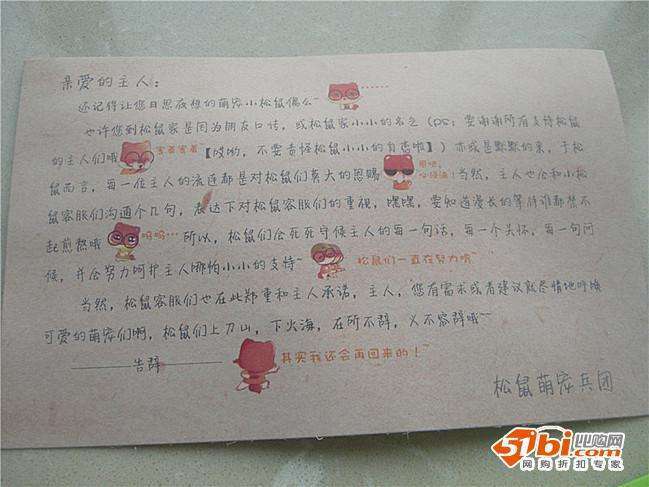 亲爱的主人：
还记得让您日思夜想的萌宠小松鼠偶么~ ……
也许您到松鼠家是因为朋友口诉，或松鼠家小小的名气（PS：要谢谢所有支持松鼠
的主人们哦 害羞害羞【哎哟，不要责怪松鼠小小的自传啦】）亦或是默默的来，于松
鼠而言，每一位主人的流连都是对松鼠们莫大的恩赐 当然，主人也会和小松
鼠客服们沟通个几句，表达下对松鼠客服们的重视，嘿嘿，要知道漫长的等待谁都禁不
起煎熬哦 呜呜… 所以，松鼠们会死死守候主人的每一句话，每一个关怀，每一句问
候，并会努力呵护主人哪怕小小的支持~ 松鼠们一直在努力哦~
当然，松鼠客服们也在此郑重和主人承诺，主人，您有需求或者建议就尽情地呼唤
可爱的萌宠们啊，松鼠们上刀山，下火海，在所不辞，义不容辞哦~
——告辞—— 其实我还会再回来的！~
松鼠萌宠兵团
51bi.com 比购网
网购折扣专家